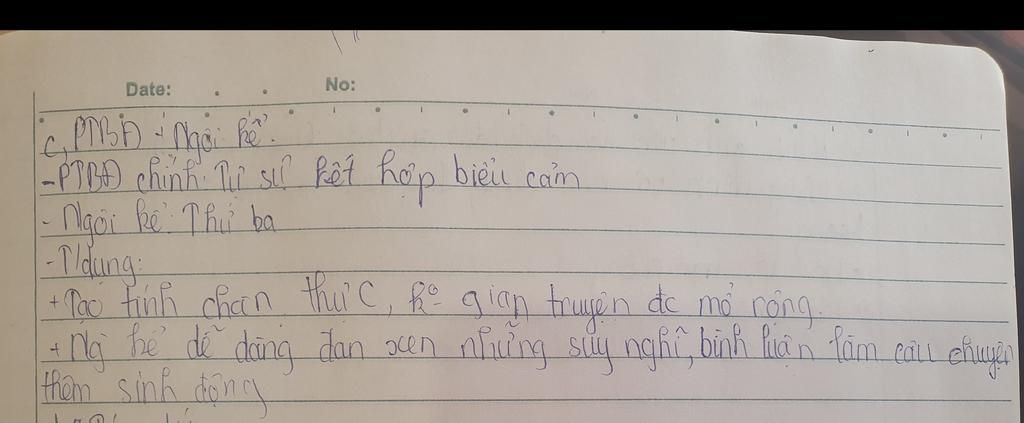 Date: No:
c, PTBĐ + Ngôi kể.
-PTBĐ chính: Tự sự kết hợp biểu cảm
- Ngôi kể: Thứ ba
- T/dụng:
+ Tạo tính chân thực, ko gian truyện đc mở rộng.
+ Ng kể dễ dàng đan xen những suy nghĩ, bình luận làm câu chuyện
thêm sinh động